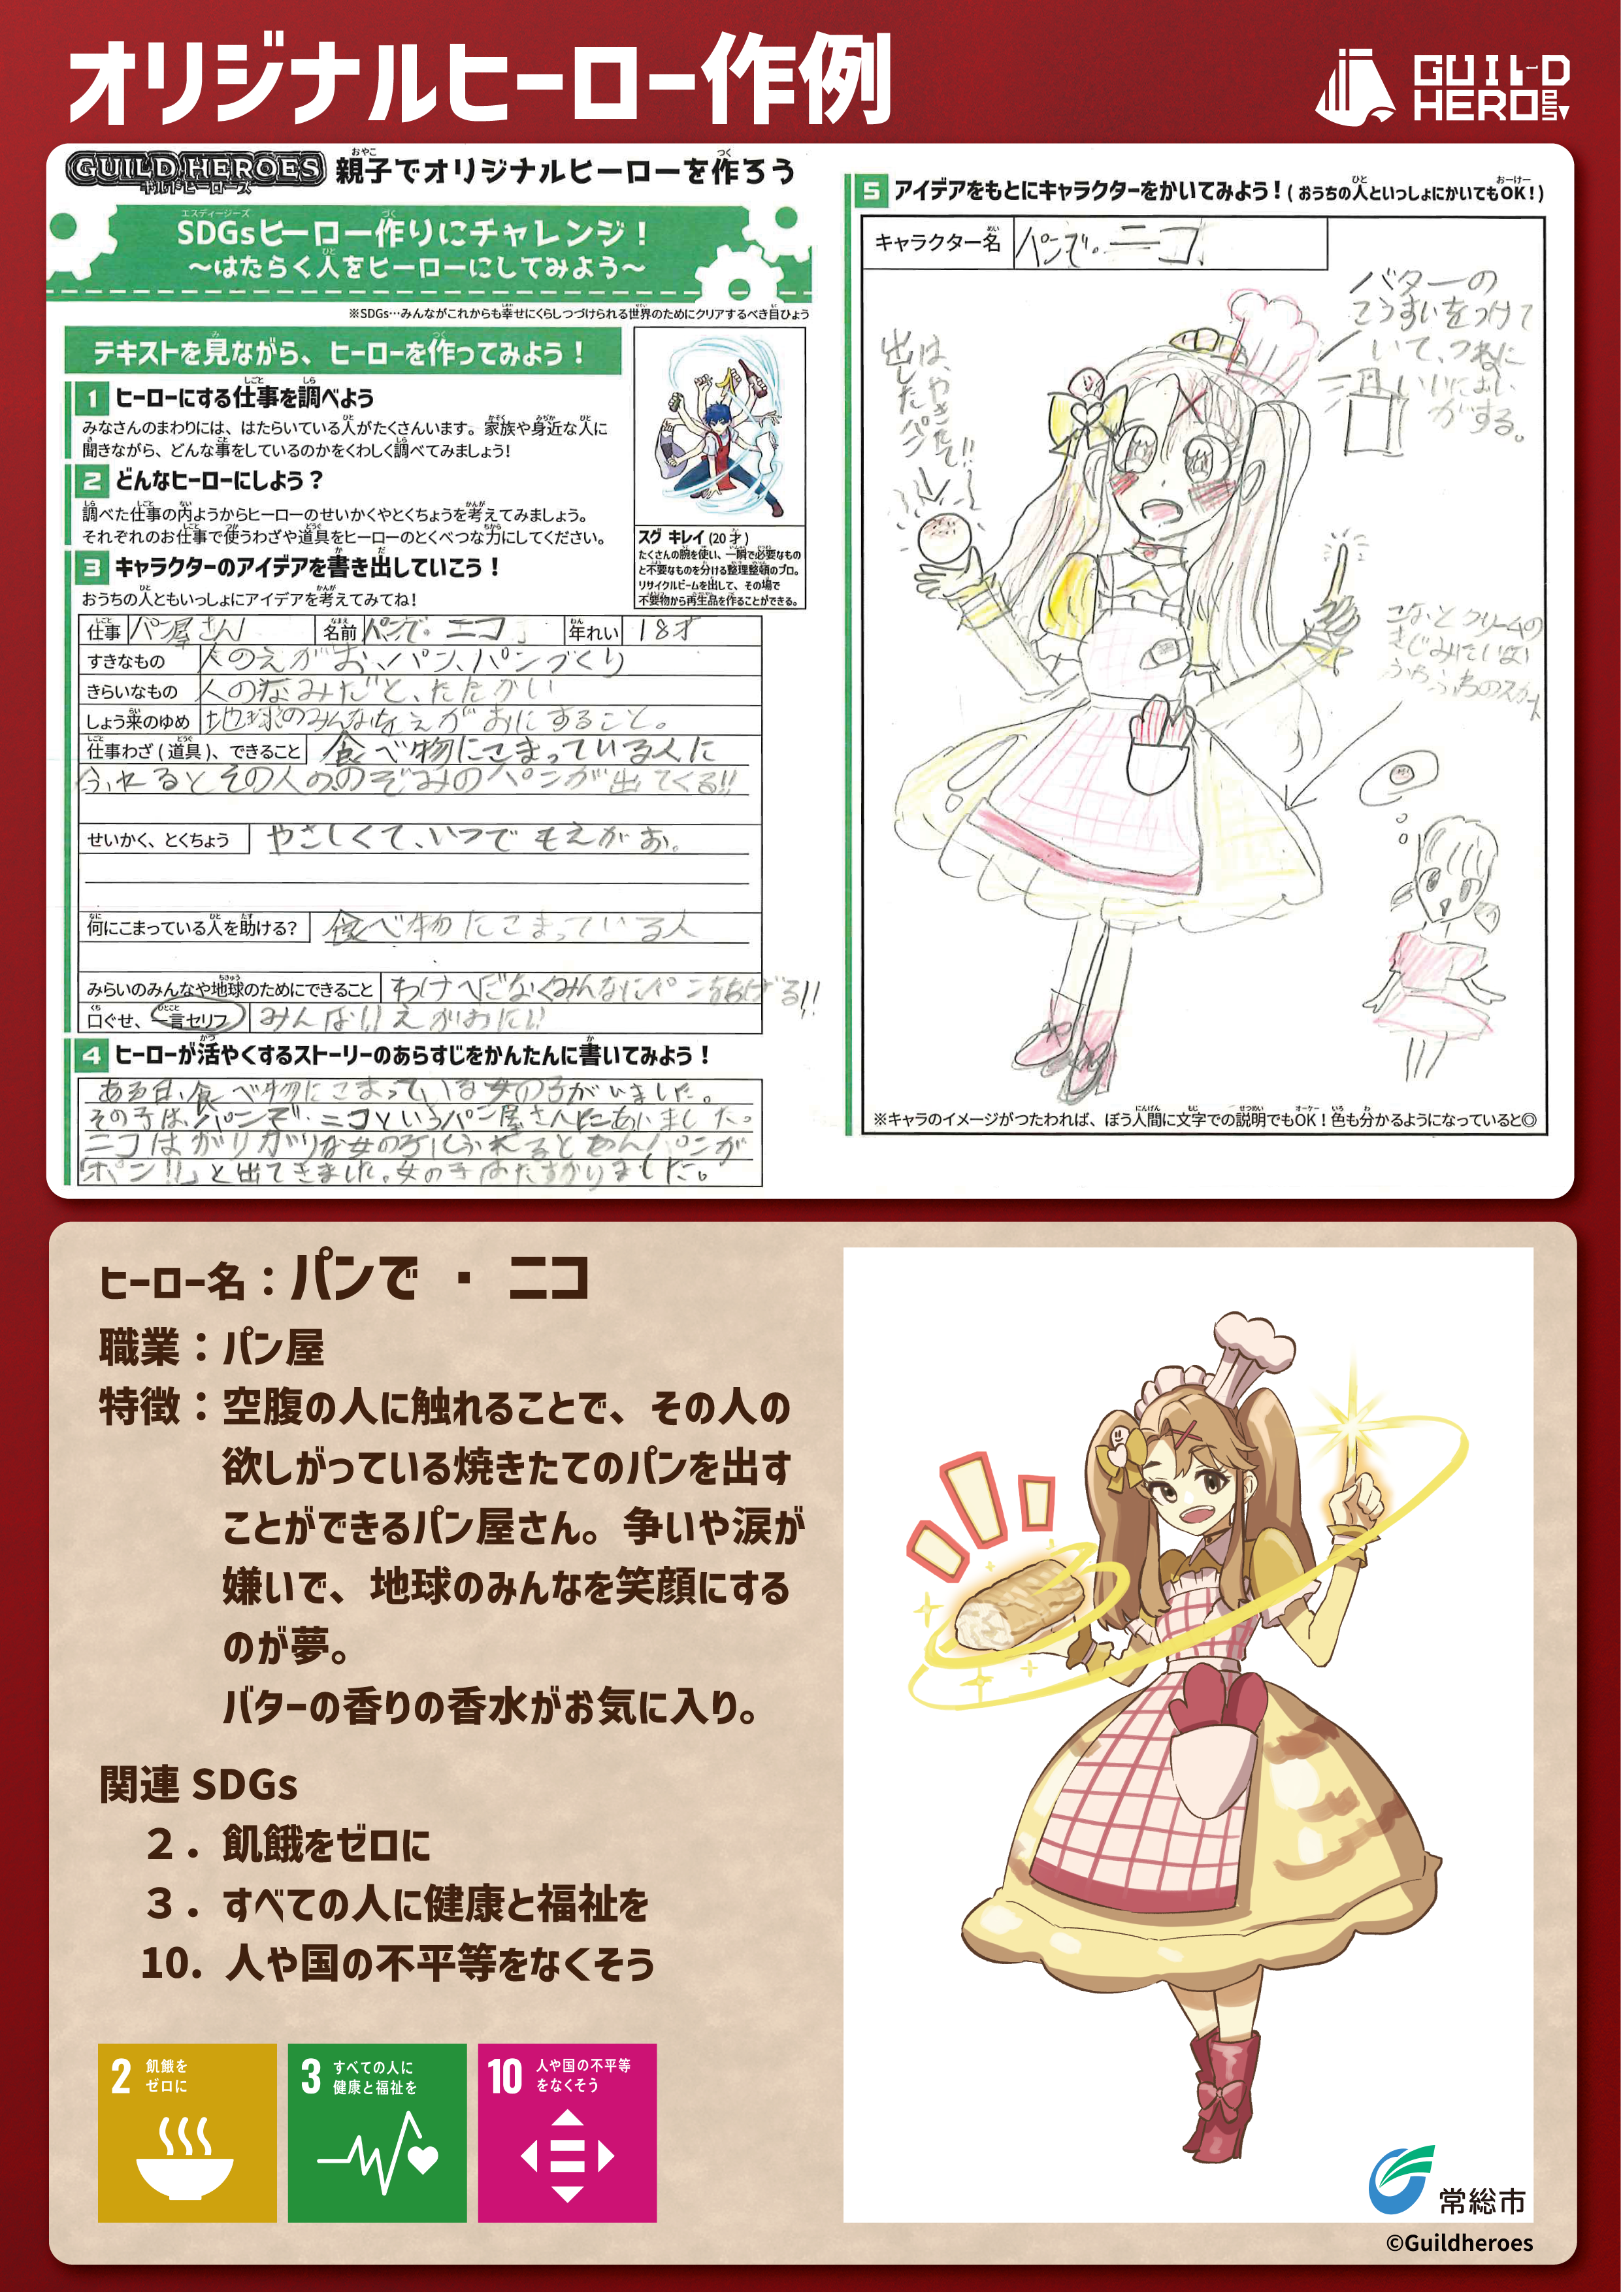 オリジナルヒーロー作例
GUILD HEROES
GUILD HEROES 親子でオリジナルヒーローを作ろう
ギルドヒーローズ
SDGsヒーロー作りにチャレンジ！
～はたらく人をヒーローにしてみよう～
※SDGs…みんながこれからも幸せにくらしつづけられる世界のためにクリアするべき目ひょう
テキストを見ながら、ヒーローを作ってみよう！
1 ヒーローにする仕事を調べよう
みなさんのまわりには、はたらいている人がたくさんいます。家族や身近な人に
聞きながら、どんな事をしているのかをくわしく調べてみましょう!
2 どんなヒーローにしよう？
調べた仕事の内ようからヒーローのせいかくやとくちょうを考えてみましょう。
それぞれのお仕事で使うわざや道具をヒーローのとくべつな力にしてください。
3 キャラクターのアイデアを書き出していこう！
おうちの人ともいっしょにアイデアを考えてみてね!
スグ キレイ (20才)
たくさんの腕を使い、一瞬で必要なもの
と不要なものを分ける整理整頓のプロ。
リサイクルビームを出して、その場で
不要物から再生品を作ることができる。
仕事 パン屋さん 名前 パンで・ニコ 年れい 18才
すきなもの 人のえがお、パン、パンづくり
きらいなもの 人のなみだと、たたかい
しょう来のゆめ 地球のみんなをえがおにすること。
仕事わざ(道具)、できること 食べ物にこまっている人に
ふれるとその人ののぞみのパンが出てくる!!
せいかく、とくちょう やさしくて、いつでもえがお。
何にこまっている人を助ける? 食べ物にこまっている人
みらいのみんなや地球のためにできること わけへだなくみんなにパンをあげる!!
口ぐせ、一言セリフ みんな!えがおに!
4 ヒーローが活やくするストーリーのあらすじをかんたんに書いてみよう！
ある日、食べ物にこまっている女の子がいました。
その子は、パンで・ニコというパン屋さんにあいました。
ニコはガリガリな女の子にふれるとあんパンが
「ポン!!」と出てきました。女の子はたすかりました。
5 アイデアをもとにキャラクターをかいてみよう！(おうちの人といっしょにかいてもOK！)
キャラクター名 パンで・ニコ
バターの
こうすいをつけて
いて、つねに
いいにおい
がする。
出したパン
は、やきたて!!
こな、とクリームの
きじみたいな
ふちふちのスカート
※キャラのイメージがつたわれば、ぼう人間に文字での説明でもOK！色も分かるようになっていると◎
ヒーロー名：パンで・ニコ
職業：パン屋
特徴：空腹の人に触れることで、その人の
欲しがっている焼きたてのパンを出す
ことができるパン屋さん。争いや涙が
嫌いで、地球のみんなを笑顔にする
のが夢。
バターの香りの香水がお気に入り。
関連 SDGs
２．飢餓をゼロに
３．すべての人に健康と福祉を
10. 人や国の不平等をなくそう
2 飢餓を
ゼロに
3 すべての人に
健康と福祉を
10 人や国の不平等
をなくそう
常総市
©Guildheroes